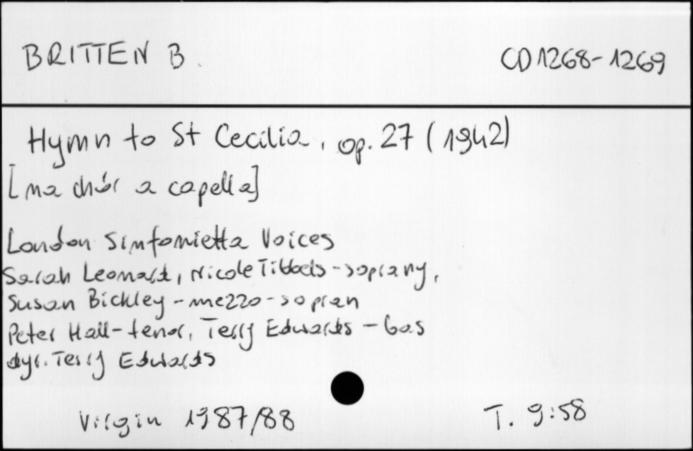 BRITTEN B.
CD 1268-1269
Hymn to St Cecilia, op. 27 (1942)
[na chór a capella]
London Sinfonietta Voices
Sarah Leonard, Nicole Tibbels - soprany,
Susan Bickley - mezzo-sopran
Peter Hall - tenor, Terry Edwards - bas
dyr. Terry Edwards
Virgin 1987/88
T. 9:58